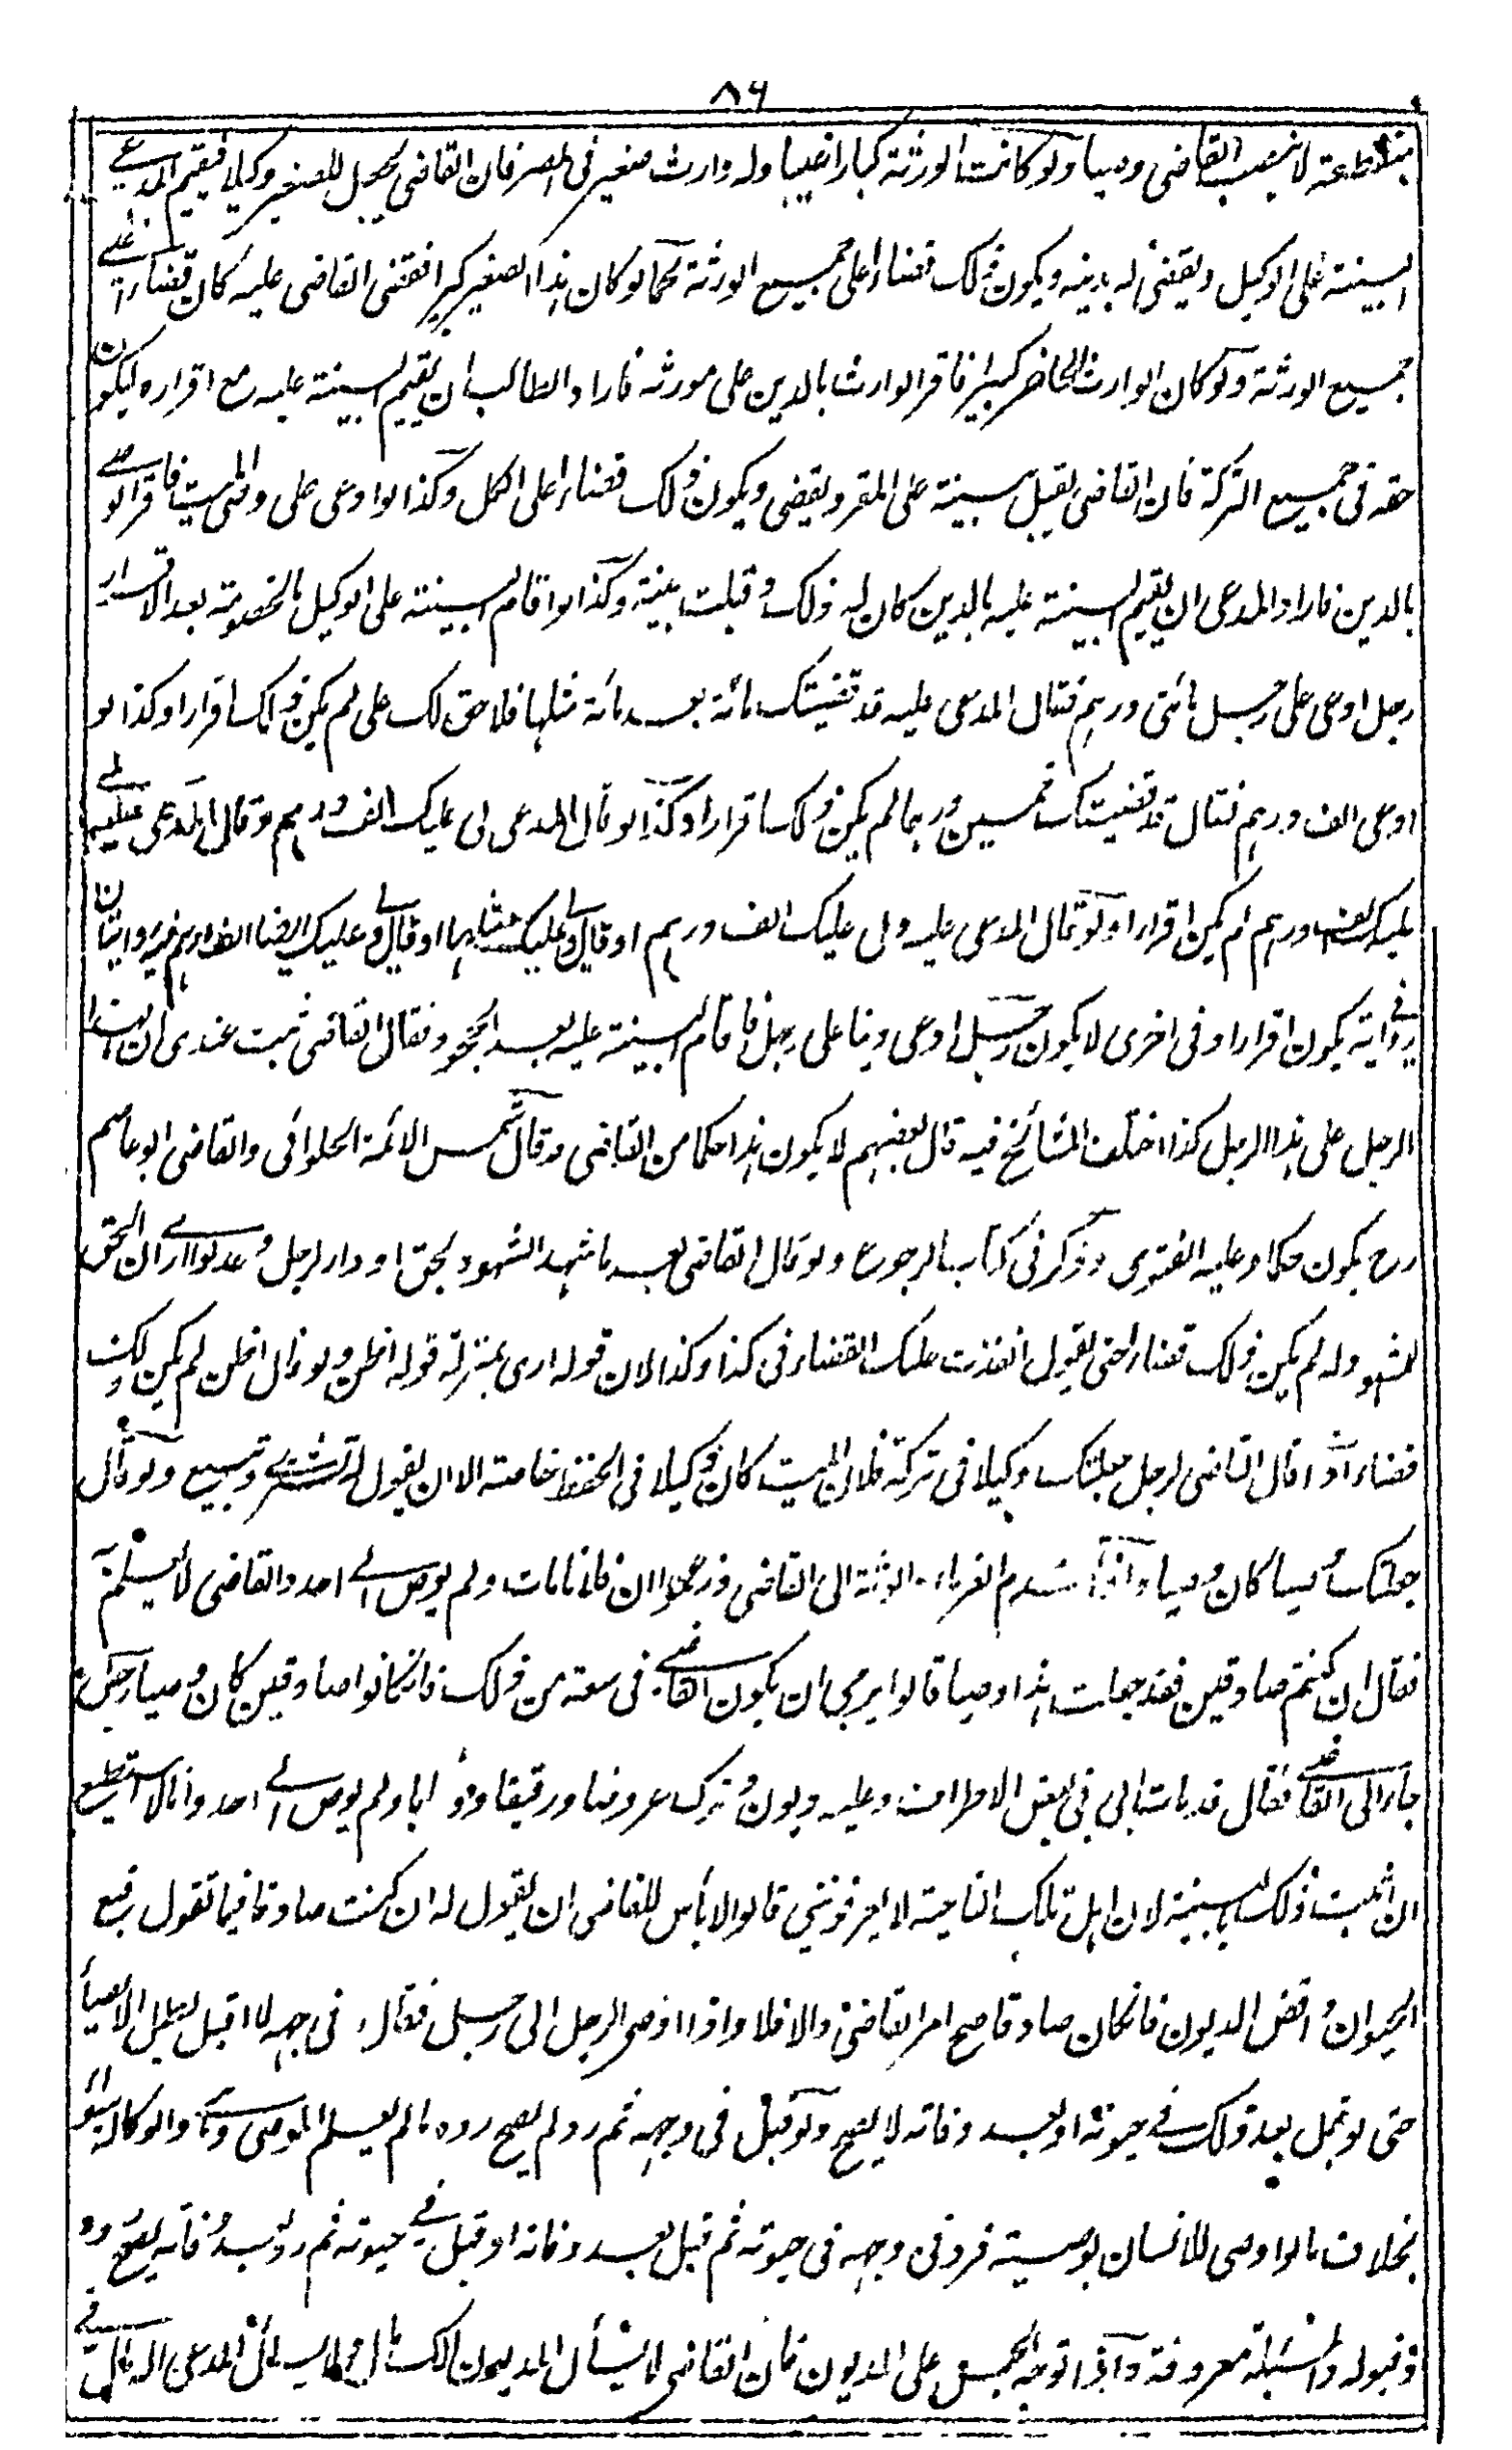 ٨٦
منقطعة لا ينصب القاضى وصيا ولو كانت الورثة كبارا غيبا وله وارث صغير فى المصر فان القاضى يجعل للصغير وكيلا فيقيم المدعى
البينة على الوكيل ويقضى له بدينه ويكون ذلك قضاء على جميع الورثة كما لو كان هذا الصغير كبيرا فقضى القاضى عليه كان قضاء على
جميع الورثة ولو كان الوارث الحاضر كبيرا فاقر الوارث بالدين على مورثه فاراد الطالب ان يقيم البينة عليه مع اقراره ليكون
حقه فى جميع التركة فان القاضى يقبل بينته على المقر ويقضى ويكون ذلك قضاء على الكل وكذا لو ادعى على وصى الميت فاقر الوصى
بالدين فاراد المدعى ان يقيم البينة عليه بالدين كان له ذلك و قبلت بينته وكذا لو اقام البينة على الوكيل بالخصومة بعد الاقرار
رجل ادعى على رجل مائتى درهم فقال المدعى عليه قد قضيتك مائة بعد مائة مثلها فلا حق لك على لم يكن ذلك اقرارا وكذا لو
ادعى الف درهم فقال قد قضيتك خمسين درهما لم يكن ذلك اقرارا وكذا لو قال المدعى لى عليك الف درهم وقال المدعى عليه لى
عليك الف درهم لم يكن اقرارا ولو قال المدعى عليه ولى عليك الف درهم او قال ولى عليك مثلها او قال ولى عليك ايضا الف درهم فيه روايتان
فى رواية يكون اقرارا وفى اخرى لا يكون رجل ادعى دينا على رجل فاقام البينة عليه بعد الجحود فقال القاضى ثبت عندى ان لهذا
الرجل على هذا الرجل كذا اختلف المشائخ فيه قال بعضهم لا يكون هذا حكما من القاضى وقال شمس الائمة الحلوائى والقاضى ابو عاصم
رح يكون حكما وعليه الفتوى وذكر فى كتاب الرجوع ولو قال القاضى بعد ما شهد الشهود بحق او دار لرجل وعدلوا ارى ان الحق
للمشهود له لم يكن ذلك قضاء حتى يقول انفذت عليك القضاء فى كذا وكذا لان قوله ارى بمنزلة قوله اظن ولو قال اظن لم يكن ذلك
قضاء واذا قال القاضى لرجل جعلتك وكيلا فى تركة فلان الميت كان وكيلا فى الحفظ خاصة الا ان يقول له تشترى وتبيع ولو قال
جعلتك وصيا كان وصيا واذا قدم الغرماء الورثة الى القاضى وزعموا ان فلانا مات ولم يوص الى احد والقاضى لا يعلم
فقال ان كنتم صادقين فقد جعلت هذا وصيا قالوا يرجى ان يكون القاضى فى سعة من ذلك فان كانوا صادقين كان وصيا رجل
جاء الى القاضى فقال قد مات ابى فى بعض الاطراف وعليه ديون وترك عروضا ورقيقا ودوابا ولم يوص الى احد وانا لا استطيع
ان اثبت ذلك بالبينة لان اهل تلك الناحية لا يعرفوننى قالوا لا بأس للقاضى ان يقول له ان كنت صادقا فيما تقول فبع
الحيوان و اقض الديون فان كان صادقا صح امر القاضى والا فلا واذا اوصى الرجل الى رجل فقال فى وجهه لا اقبل بطل الايصاء
حتى لو قبل بعد ذلك فى حيوته او بعد وفاته لا يصح ولو قبل فى وجهه ثم رد لم يصح رده ما لم يعلم الموصى والوكالة سواء
بخلاف ما لو اوصى للانسان بوصية فرد فى وجهه فى حيوته ثم قبل بعد وفاته او قبل فى حيوته ثم رد بعد وفاته يصح رده
وقبوله والمسئلة معروفة واذا توجه الحبس على المديون فان القاضى لا يسأل المديون الك مال يسأل المدعى اله مال فى